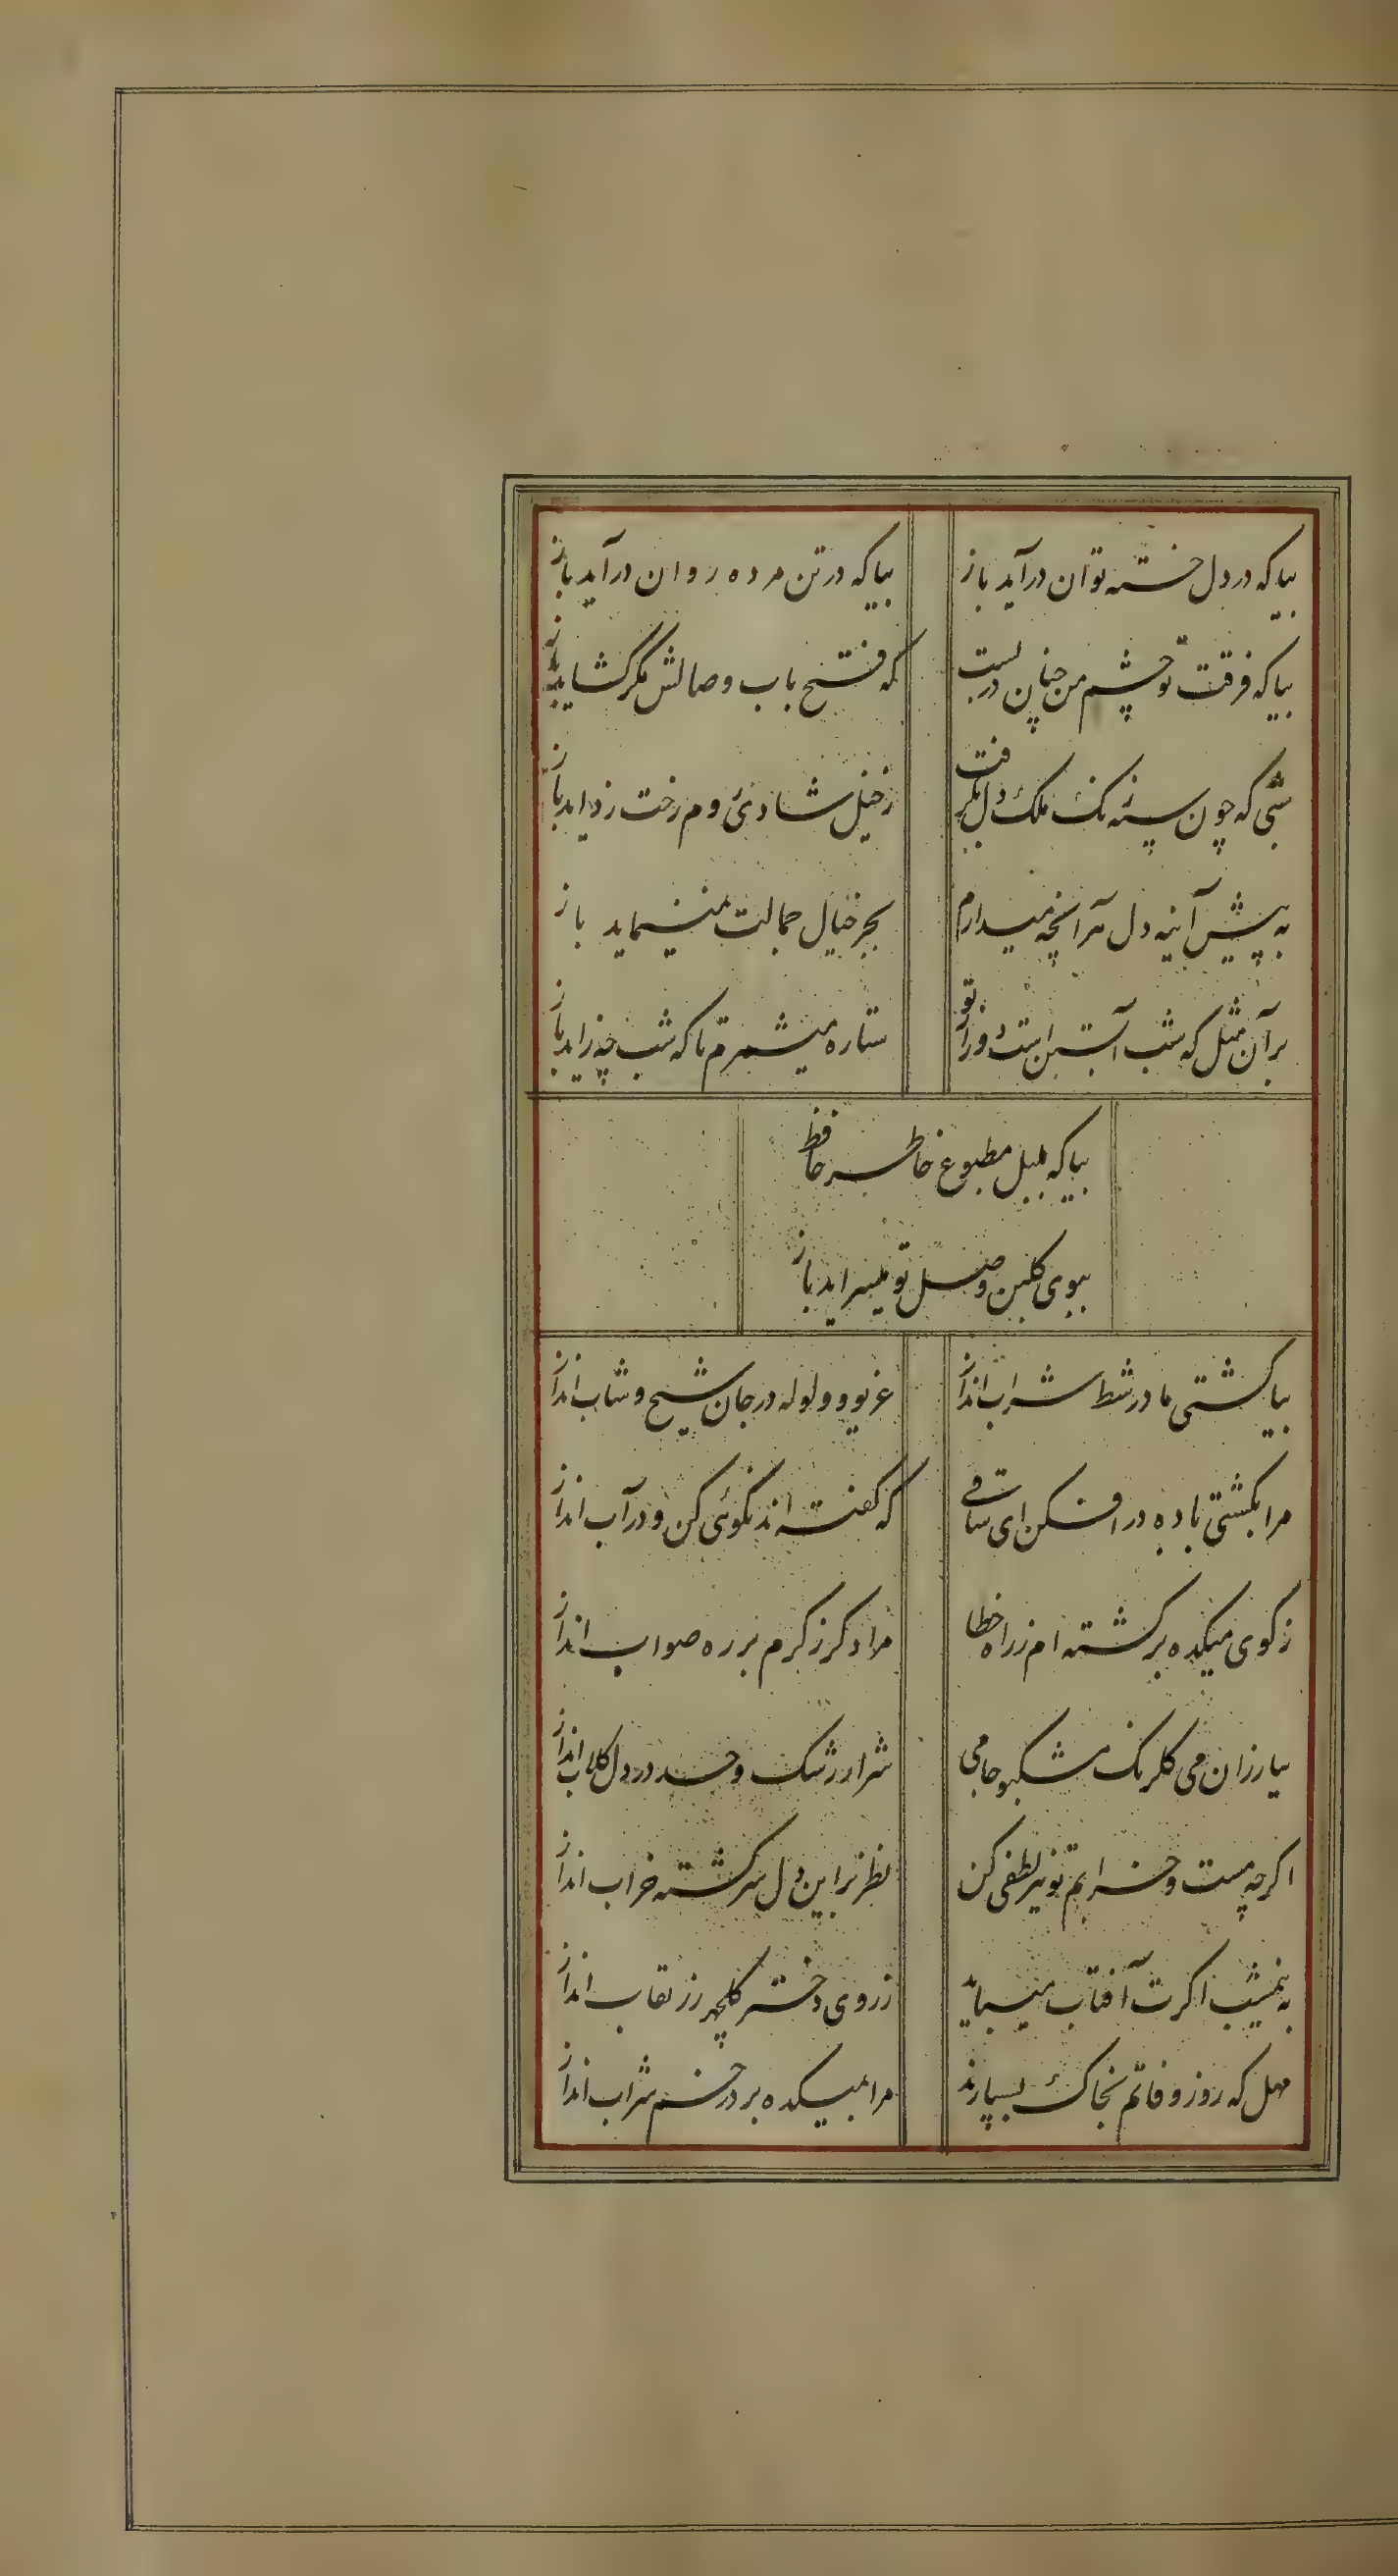 بیا که در دل خسته توان درآید باز
بیا که در تن مرده روان درآید باز
بیا که فرقت تو چشم من چنان در بست
که فتح باب وصالش مگر گشاید باز
شبی که چون سپه زنگ ملک دل بگرفت
ز خیل شادئ روم رخت زداید باز
به پیش آینه دل هر آنچه میدارم
بجز خیال جمالت نمینماید باز
بر آن مثل که شب آبستن است روز از تو
ستاره میشمرم تا که شب چه زاید باز
بیا که بلبل مطبوع خاطر حافظ
ببوی گلبن وصل تو میسراید باز
بیا کشتی ما در شط شراب انداز
غریو و ولوله در جان شیخ و شاب انداز
مرا بکشتی باده در افکن ای ساقی
که گفته اند نکوئی کن و در آب انداز
ز کوی میکده برگشته ام ز راه خطا
مرا دگر ز کرم بر ره صواب انداز
بیار زان می گلرنگ مشکبو جامی
شرار رشک و حسد در دل گلاب انداز
اگر چه مست و خرابم تو نیز لطفی کن
نظر بر این دل سرگشته خراب انداز
به نیمشب اگرت آفتاب میباید
ز روی دختر گلچهر رز نقاب انداز
مهل که روز وفاتم بخاک بسپارند
مرا بمیکده بر در خم شراب انداز